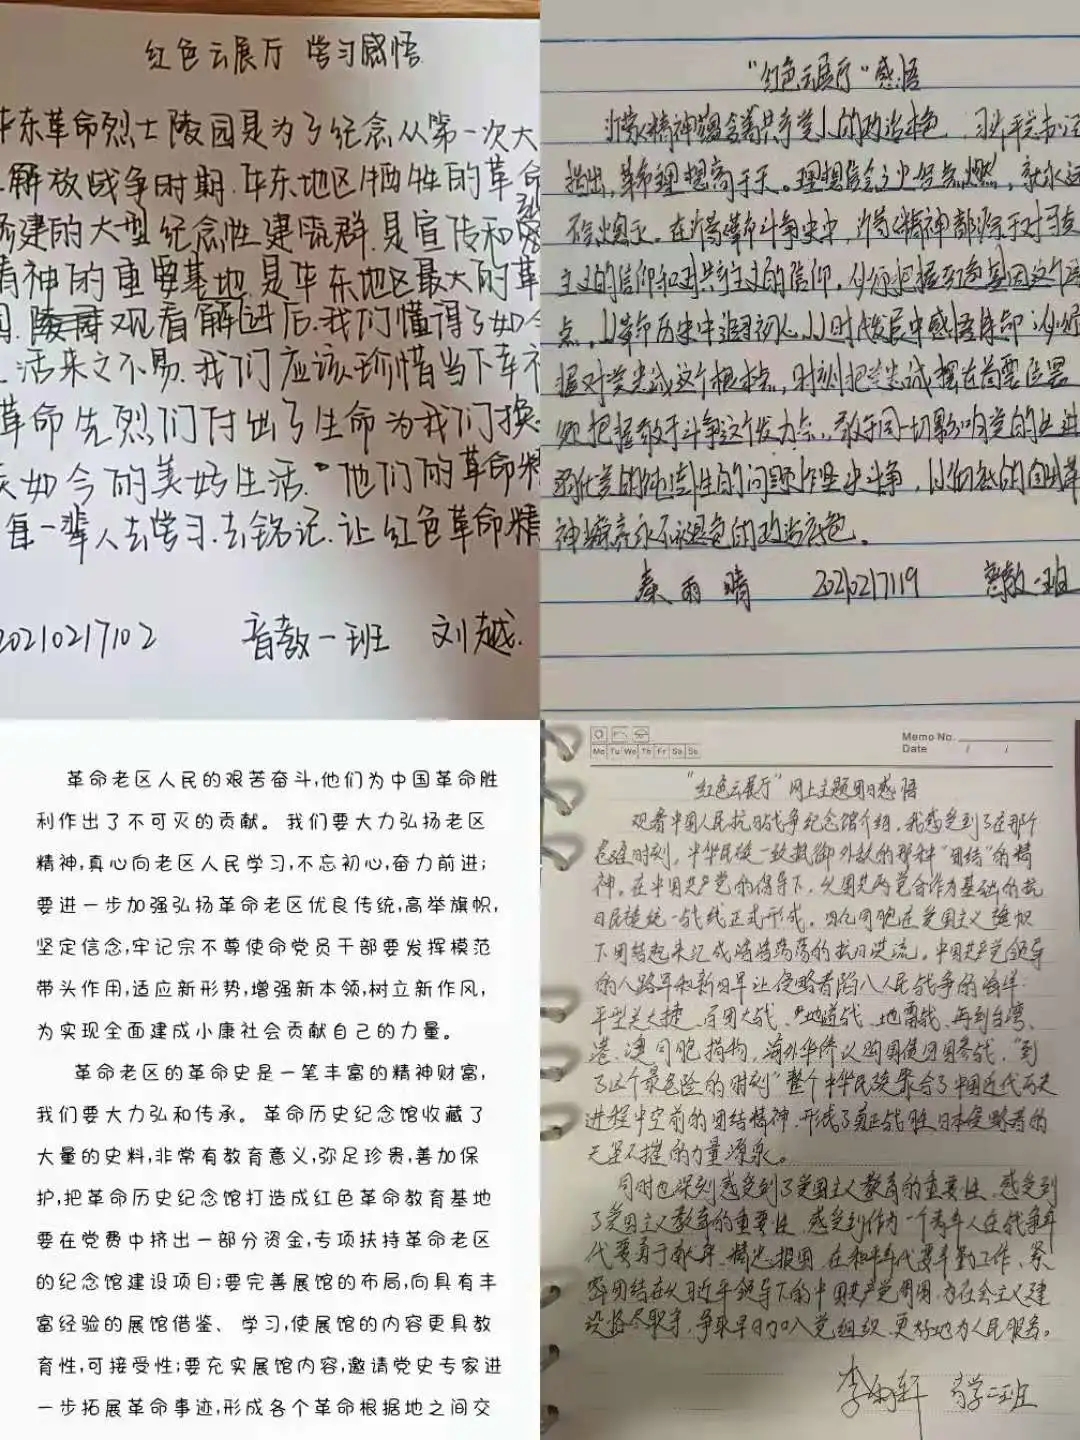 红色云展厅 学习感悟
华东革命烈士陵园是为了纪念从第一次大
解放战争时期.华东地区牺牲的革命
建的大型纪念性建筑群.是宣传和
精神的重要基地.是华东地区最大的革
园. 观看解说后.我们懂得了如今
活来之不易.我们应该珍惜当下幸
革命先烈们付出了生命为我们换
如今的美好生活.他们的革命精
每一辈人去学习.去铭记.让红色革命精
20210217102 音教一班 刘越.
"红色云展厅"感悟
沂蒙精神蕴含着共产党人的政治本色 习近平总书记
指出,革命理想高于天。理想信念之火一经点燃,就永远
不会熄灭。在沂蒙革命斗争史中,沂蒙精神都源于对马克
主义的信仰和对共产主义的信仰,必须把握红色基因这个
点,从革命历史中追寻初心,从时代发展中感悟使命;必须
握对党忠诚这个根本点,时刻把党忠诚摆在首要位置
须把握敢于斗争这个发力点,敢于同一切影响党的先进
弱化党的纯洁性的问题作坚决斗争,以彻底的自我革
神擦亮永不褪色的政治底色。
秦雨晴 20210217119 音教一班
革命老区人民的艰苦奋斗,他们为中国革命胜
利作出了不可灭的贡献。我们要大力弘扬老区
精神,真心向老区人民学习,不忘初心,奋力前进;
要进一步加强弘扬革命老区优良传统,高举旗帜,
坚定信念,牢记宗不尊使命党员干部要发挥模范
带头作用,适应新形势,增强新本领,树立新作风,
为实现全面建成小康社会贡献自己的力量。
革命老区的革命史是一笔丰富的精神财富,
我们要大力弘和传承。革命历史纪念馆收藏了
大量的史料,非常有教育意义,弥足珍贵,善加保
护,把革命历史纪念馆打造成红色革命教育基地
要在党费中挤出一部分资金,专项扶持革命老区
的纪念馆建设项目;要完善展馆的布局,向具有丰
富经验的展馆借鉴、学习,使展馆的内容更具教
育性,可接受性;要充实展馆内容,邀请党史专家进
一步拓展革命事迹,形成各个革命根据地之间交
Memo No.
Mo Tu We Th Fr Sa Su
Date / /
"红色云展厅"网上主题团日感悟
观看中国人民抗日战争纪念馆介绍,我感受到了在那个
危难时刻,中华民族一致抵御外敌的那种"团结"的精
神。在中国共产党的倡导下,以国共两党合作为基础的抗
日民族统一战线正式形成,四亿同胞在爱国主义旗帜
下团结起来汇成浩浩荡荡的抗日洪流。中国共产党领导
的八路军和新四军让侵略者陷入人民战争的海洋:
平型关大捷、百团大战、地道战、地雷战、再到台湾、
港、澳同胞捐物,海外华侨认购国债回国参战,"到
了这个最危险的时刻"整个中华民族聚合了中国近代历史
进程中空前的团结精神,形成了真正战胜日本侵略者的
无坚不摧的力量源泉。
同时也深刻感受到了爱国主义教育的重要性,感受到
了爱国主义教育的重要性,感受到作为一个青年人在战争年
代要勇于献身、精忠报国,在和平年代要辛勤工作、紧
密团结在以习近平领导下的中国共产党周围,为社会主义建
设恪尽职守,争取早日加入党组织,更好地为人民服务。
李 轩 音学二班